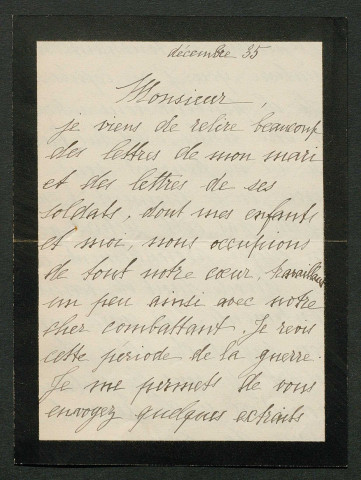 décembre 35
Monsieur,
je viens de relire beaucoup
des lettres de mon mari
et des lettres de ses
soldats, dont mes enfants
et moi, nous occupions
de tout notre cœur, travaillant
un peu ainsi avec notre
cher combattant. Je revis
cette periode de la guerre.
Je me permets de vous
envoyez quelques extraits